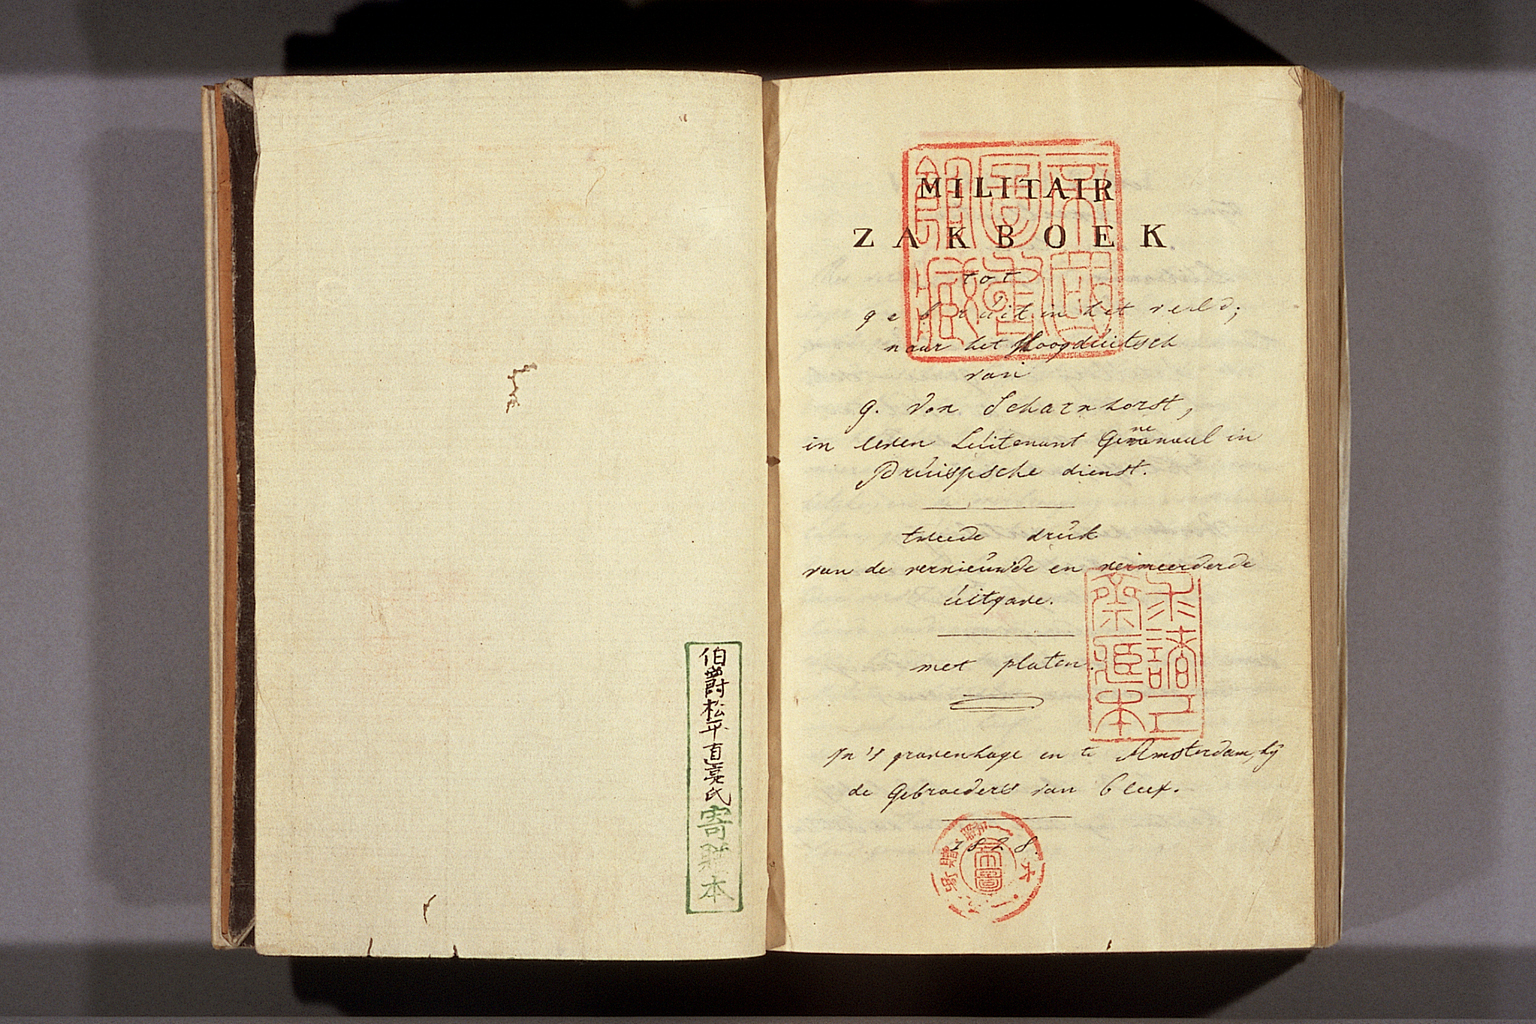 伯爵松平直亮氏寄贈本
MILITAIR
ZAKBOEK
tot
gebruik in het veld;
naar het Hoogduitsch
van
G. von Scharnhorst,
in leven Luitenant Genneraal in
Pruissische dienst.
tweede druk
van de vernieuwde en vermeerderde
uitgave.
met platen.
In 's gravenhage en te Amsterdam, bij
de Gebroeders van Cleef.
1828.
帝国図書館蔵